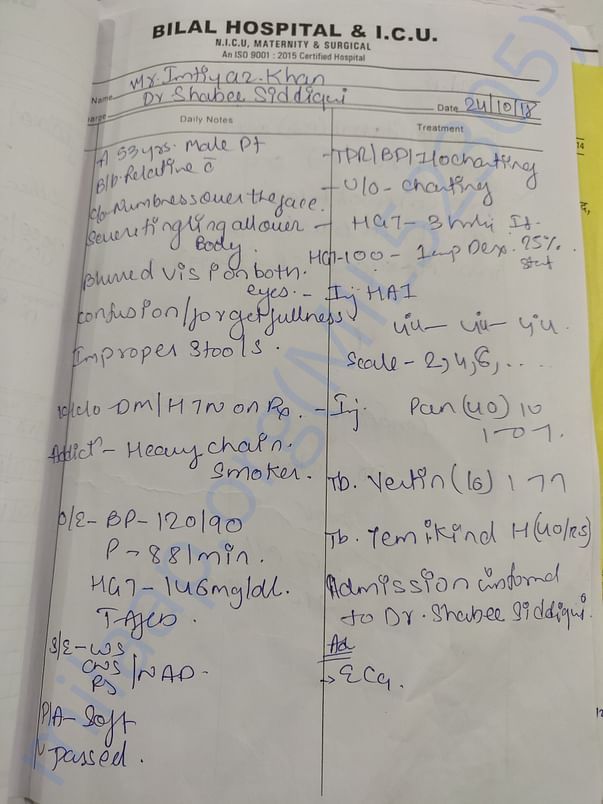 BILAL HOSPITAL & I.C.U.
N.I.C.U, MATERNITY & SURGICAL
An ISO 9001 : 2015 Certified Hospital
Name Mr. Imtiyaz Khan
Dr Shabee Siddiqui
Date 24/10/18
arge
Daily Notes
Treatment
A 53 yrs. male Pt
B/b. Relative c̄
c/o - Numbness over the face.
Severe tingling all over
Body.
Blurred vision both
eyes.
confusion/forgetfullness
Improper stools.
DM/HTN on Rx.
Addict - Heavy chain
smoker.
O/E - BP - 120/90
P - 88/min.
HGT - 146mg/dl.
S/E - CVS
CNS
RS /NAD.
P/A - Soft
passed.
- TPR/BP/I/O charting
- U/O - charting
- HGT - 3 hrly
HGT<100 - 1 amp Dex. 25%
stat
- Inj HAI
Scale - 2, 4, 6, ....
- Inj Pan (40)
1-0-1.
Tb. Vertin (16) 1
Tb. Temikind H (40/
Admission informd
to Dr. Shabee Siddiqui.
Ad
→ ECG.
milaap.org(MIL52305)
14
12